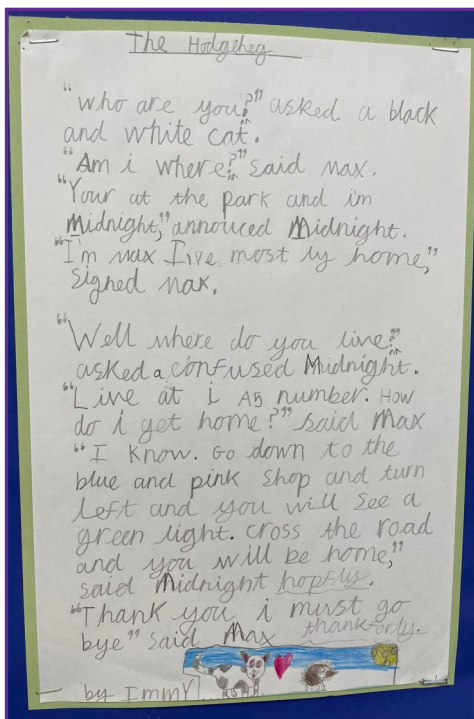 The Hodgeheg
"who are you?" asked a black
and white cat.
"Am i where?" said Max.
"Your at the park and im
Midnight," annouced Midnight.
"I'm Max I ive most ly home,"
signed Max.
"Well where do you live?"
asked a confused Midnight.
"Live at i A5 number. How
do i get home?" said Max
"I know. Go down to the
blue and pink shop and turn
left and you will see a
green light. cross the road
and you will be home,"
said Midnight hopfly.
"Thank you i must go
bye" said Max thankforly.
by Immy